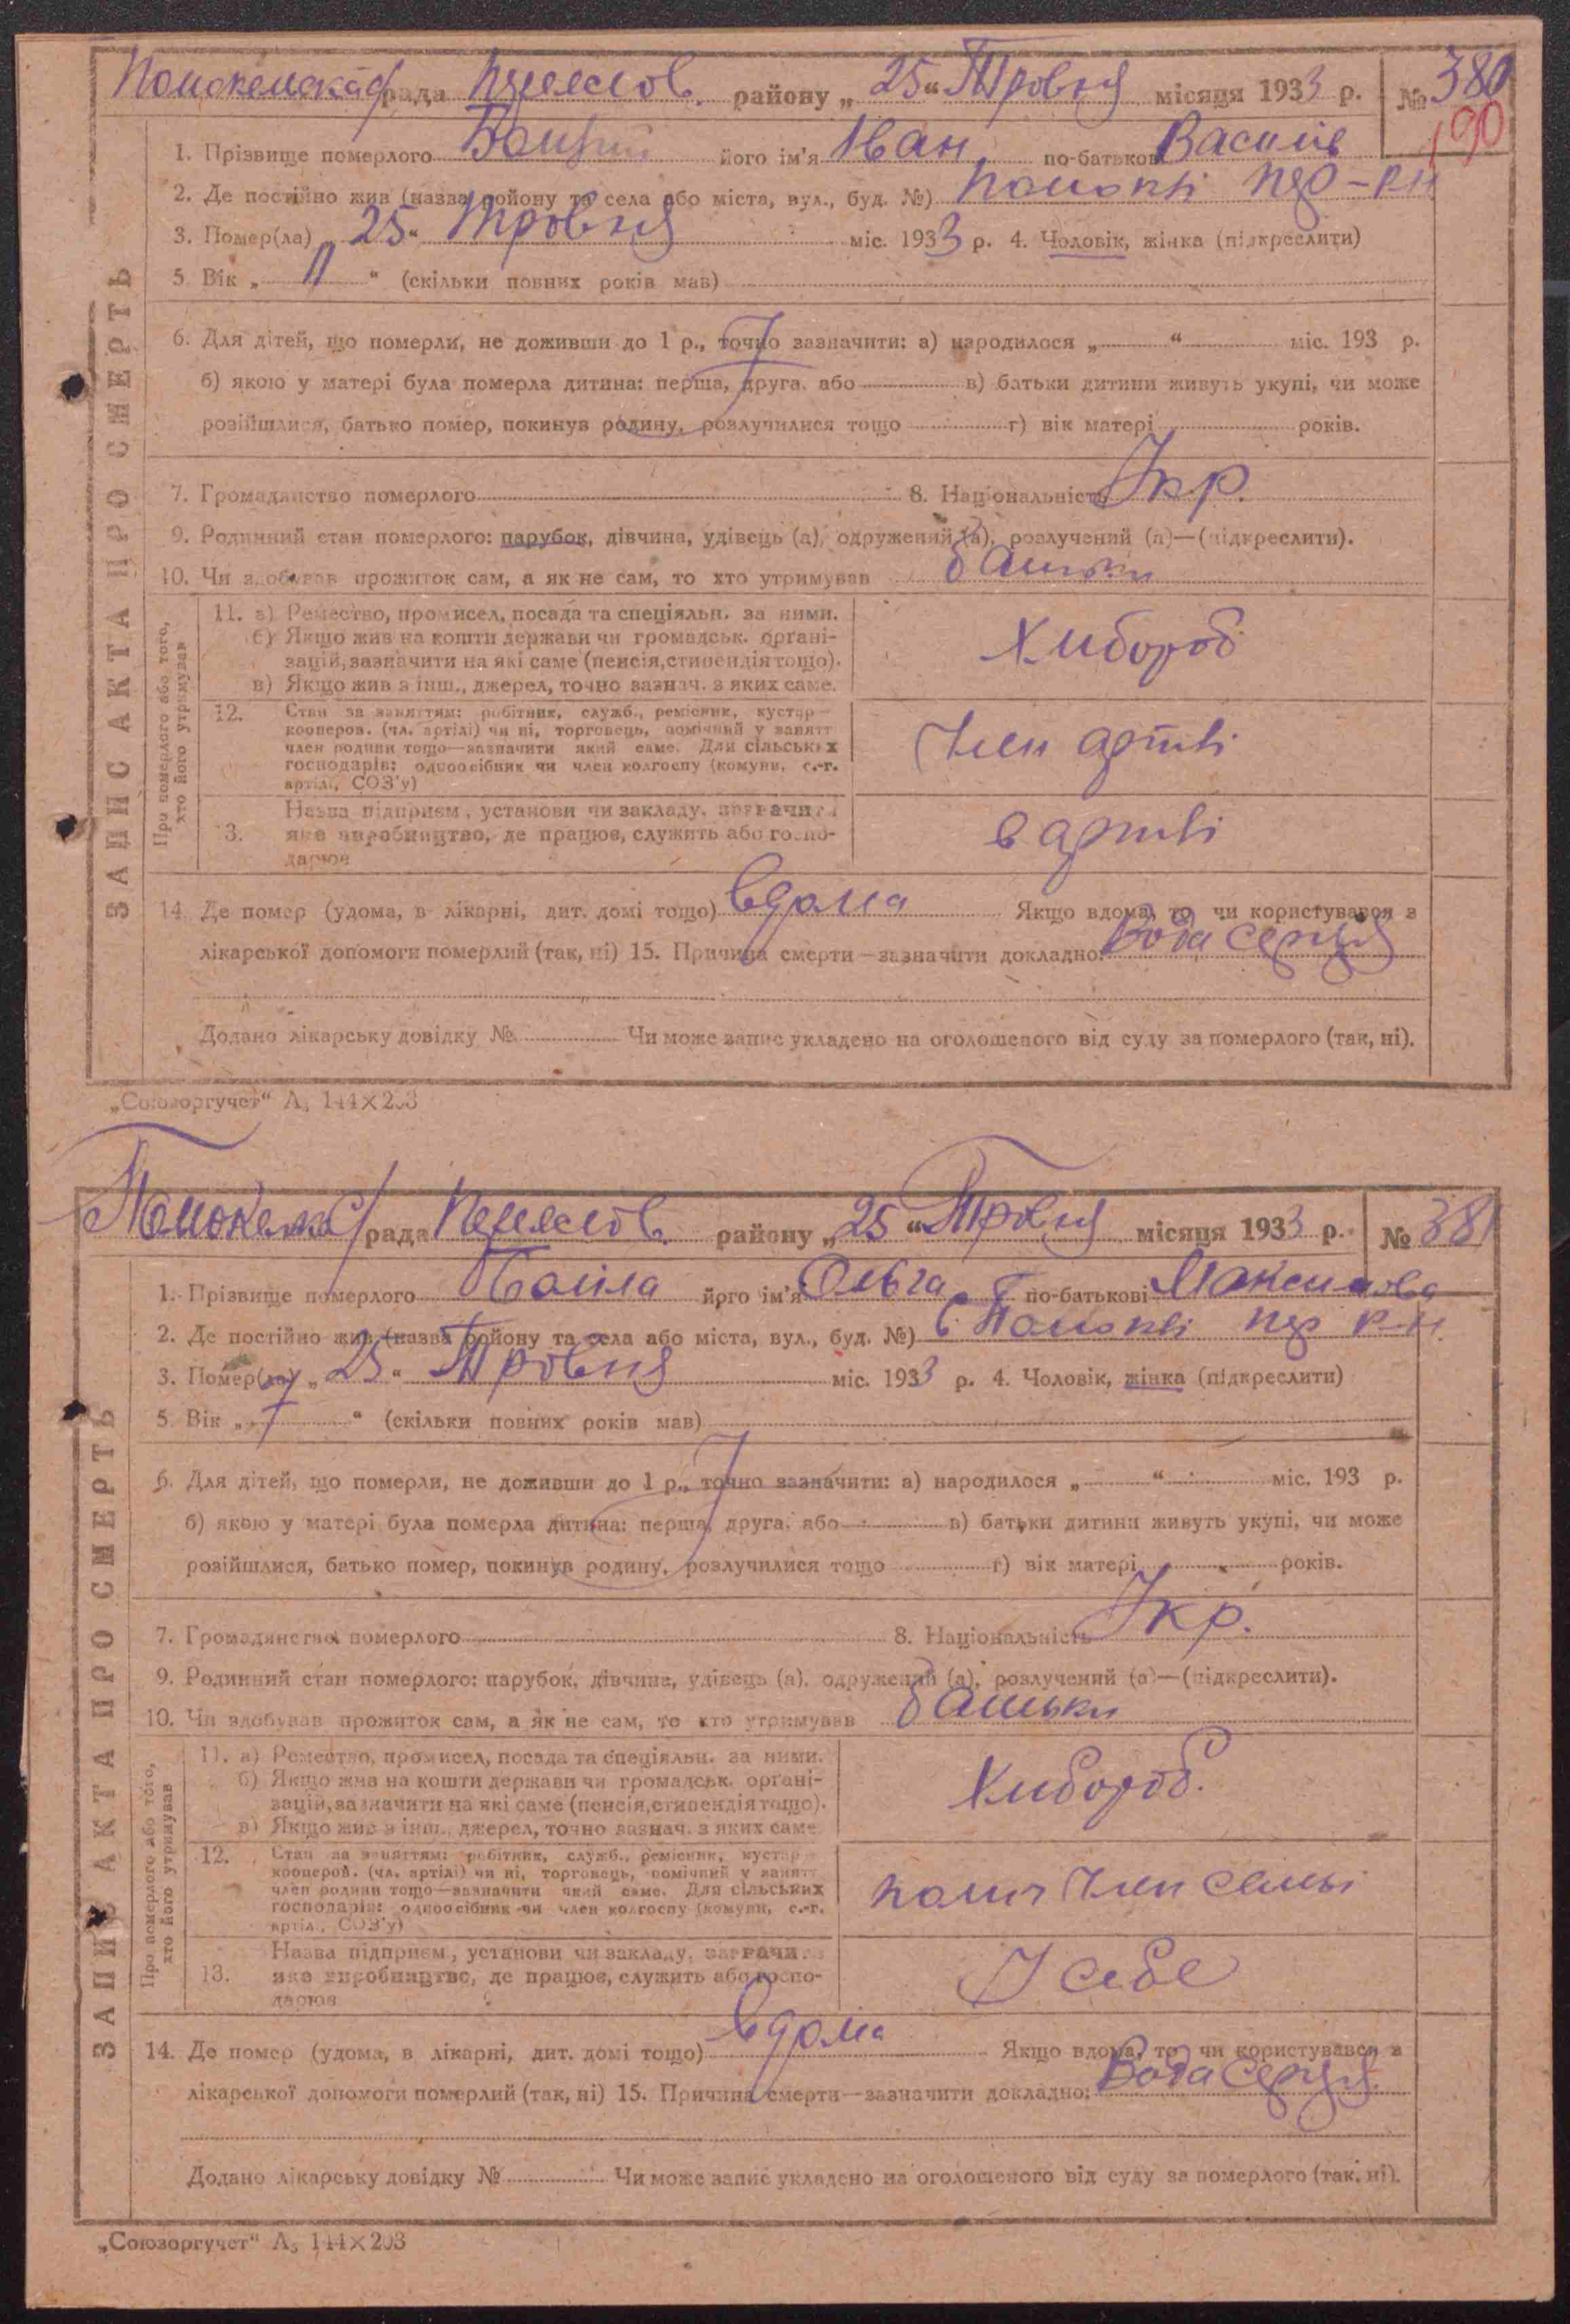 рада Переяслов. району „25“ Травня місяця 1933 р. № 380
190
1. Прізвище померлого його ім'я Іван по-батькові Василів
2. Де постійно жив (назва району та села або міста, вул., буд. №) Помоклі Пер-р-н
3. Помер(ла) „25“ Травня міс. 1933 р. 4. Чоловік, жінка (підкреслити)
5. Вік „ “ (скільки повних років мав)
6. Для дітей, що померли, не доживши до 1 р., точно зазначити: а) народилося „ “ міс. 193 р.
б) якою у матері була померла дитина: перша, друга, або в) батьки дитини живуть укупі, чи може
розійшлися, батько помер, покинув родину, розлучилися тощо г) вік матері років.
7. Громадянство померлого 8. Національність Укр.
9. Родинний стан померлого: парубок, дівчина, удівець (а), одружений (а), розлучений (а)—(підкреслити).
10. Чи здобував прожиток сам, а як не сам, то хто утримував батьки
ЗАПИС АКТА ПРО СМЕРТЬ
При померлого або того, хто його утримував
11. а) Ремество, промисел, посада та спеціяльн. за ними.
б) Якщо жив на кошти держави чи громадськ. органі-
зацій, зазначити на які саме (пенсія, стипендія тощо).
в) Якщо жив з інш., джерел, точно зазнач. з яких саме.
Хлібороб
12. Стан за заняттям: робітник, служб., ремісник, кустар—
кооперов. (чл. артілі) чи ні, торговець, помічний у занятт
член родини тощо—зазначити який саме. Для сільських
господарів: одноосібник чи член колгоспу (комуни, с.-г.
артілі, СОЗ'у)
Член артілі
13. Назва підприєм., установи чи закладу, зазначити
яке виробництво, де працює, служить або госпо-
дарює
в артілі
14. Де помер (удома, в лікарні, дит. домі тощо) вдома Якщо вдома, то чи користувався з
лікарської допомоги померлий (так, ні) 15. Причина смерти—зазначити докладно: Вода серця
Додано лікарську довідку № Чи може запис укладено на оголошеного від суду за померлого (так, ні).
„Союзоргучет“ А₅ 144×203
рада Переяслов. району „25“ Травня місяця 1933 р. № 381
1. Прізвище померлого його ім'я Ольга по-батькові Максимова
2. Де постійно жив (назва району та села або міста, вул., буд. №) с. Помоклі Пер р-н.
3. Помер(ла) „25“ Травня міс. 1933 р. 4. Чоловік, жінка (підкреслити)
5. Вік „7“ (скільки повних років мав)
6. Для дітей, що померли, не доживши до 1 р., точно зазначити: а) народилося „ “ міс. 193 р.
б) якою у матері була померла дитина: перша, друга, або в) батьки дитини живуть укупі, чи може
розійшлися, батько помер, покинув родину, розлучилися тощо г) вік матері років.
7. Громадянство померлого 8. Національність Укр.
9. Родинний стан померлого: парубок, дівчина, удівець (а), одружений (а), розлучений (а)—(підкреслити).
10. Чи здобував прожиток сам, а як не сам, то хто утримував батьки
ЗАПИС АКТА ПРО СМЕРТЬ
Про померлого або того, хто його утримував
11. а) Ремество, промисел, посада та спеціяльн. за ними.
б) Якщо жив на кошти держави чи громадськ. органі-
зацій, зазначити на які саме (пенсія, стипендія тощо).
в) Якщо жив з інш., джерел, точно зазнач. з яких саме
Хлібороб.
12. Стан за заняттям: робітник, служб., ремісник, кустар
кооперов. (чл. артілі) чи ні, торговець, помічний у занятт
член родини тощо—зазначити який саме. Для сільських
господарів: одноосібник чи член колгоспу (комуни, с.-г.
артілі, СОЗ'у)
поміч член семьі
13. Назва підприєм., установи чи закладу, зазначити
яке виробництво, де працює, служить або госпо-
дарює
У себе
14. Де помер (удома, в лікарні, дит. домі тощо) вдома Якщо вдома, то чи користувався з
лікарської допомоги померлий (так, ні) 15. Причина смерти—зазначити докладно: Вода серця
Додано лікарську довідку № Чи може запис укладено на оголошеного від суду за померлого (так, ні).
„Союзоргучет“ А₅ 144×203